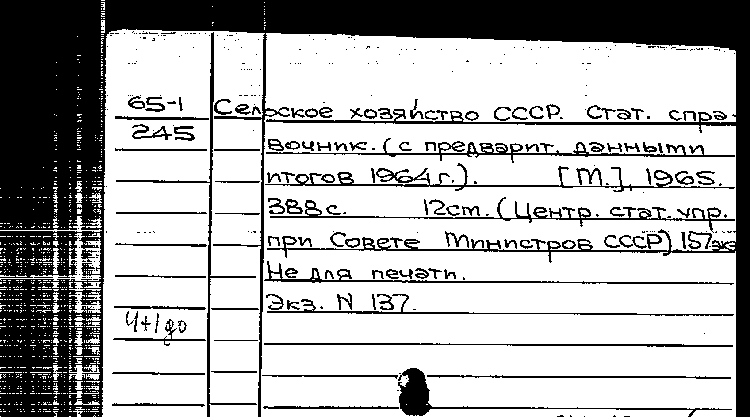 65-1 Сельское хозяйство СССР. Стат. спра-
245 вочник. (с предварит. данными
итогов 1964 г.). [М.], 1965.
388 с. 12 см. (Центр. стат. упр.
при Совете Министров СССР) 157 экз
Не для печати.
Экз. N 137.